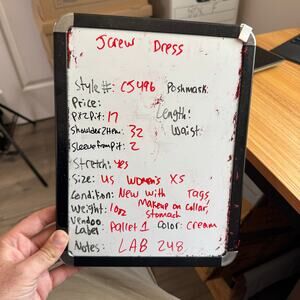 Jcrew Dress
Style #: CJ496 Poshmark:
Price:
Pit2Pit: 17 Length:
Shoulder2Hem: 32 Waist:
Sleeve from pit: 2
Stretch: yes
Size: US Women's XS
Condition: New with tags,
Makeup on collar,
Weight: 10oz stomach
Vendoo
Label: Pallet 1 Color: cream
Notes: LAB 248